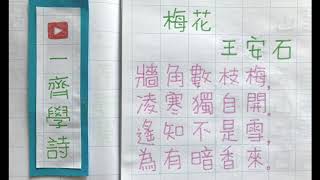 一齊學詩
梅花
王安石
牆角數枝梅，
凌寒獨自開。
遙知不是雪，
為有暗香來。